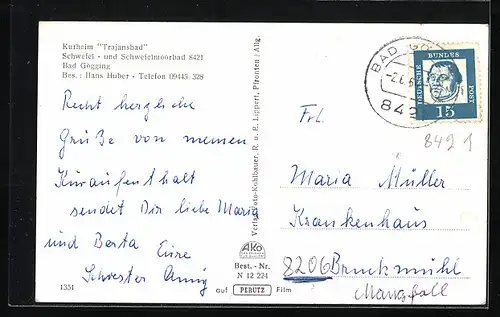 Kurheim "Trajansbad"
Schwefel - und Schwefelmoorbad 8421
Bad Gögging
Bes.: Hans Huber - Telefon 09445/328
Recht herzliche
Grüße von meinem
Kuraufenthalt
sendet Dir liebe Maria
und Berta Eure
Schwester
1331
Verlag Foto-Kohlbauer, R. u. E. Lippert, Pfronten / Allg.
AKO
Best.-Nr.
N 12 224
auf PERUTZ Film
BAD GÖ
842
DEUTSCHE
BUNDES
POST
15
8491
Frl.
Maria Müller
Krankenhaus
8206 Bruckmühl
Mangfall